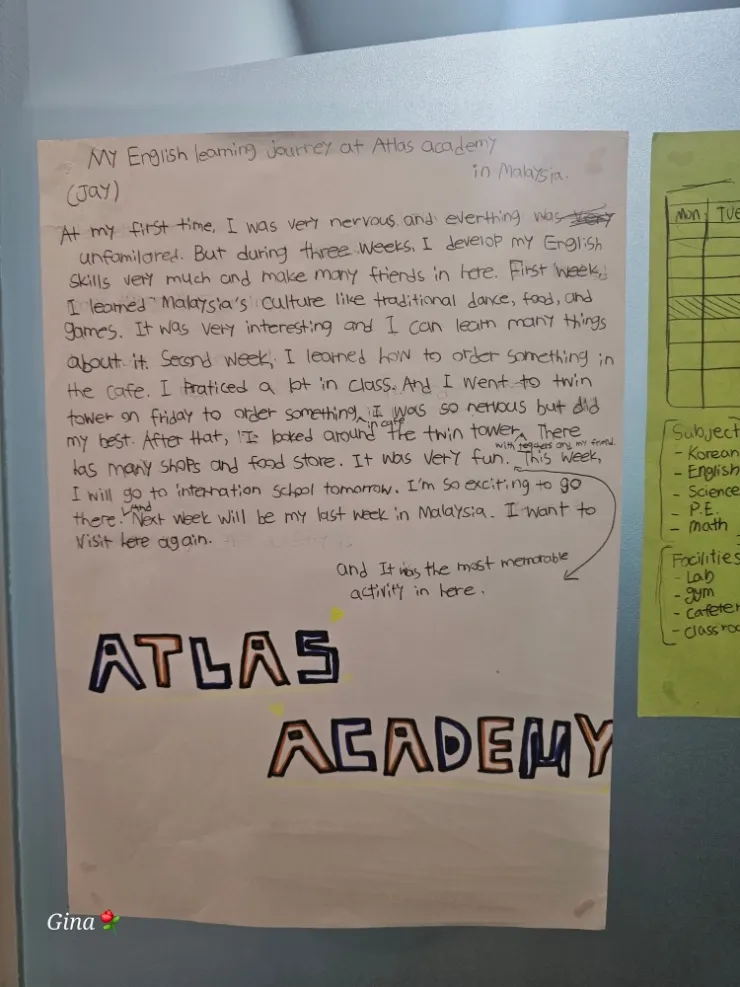 My English learning jourrey at Atlas academy
in Malaysia.
(Jay)
At my first time, I was very nervous and everthing was very
unfamilared. But during three weeks, I develop my English
skills very much and make many friends in here. First week,
I learned Malaysia's culture like traditional dance, food, and
games. It was very interesting and I can learn many things
about it. Second week, I learned how to order something in
the cafe. I praticed a lot in class. And I went to twin
tower on friday to order something in cafe, I was so nervous but did
my best. After that, I looked around the twin tower with teachers and my friend. There
has many shops and food store. It was very fun. This week,
I will go to internation school tomorrow. I'm so exciting to go
there. And Next week will be my last week in Malaysia. I want to
visit here again.
and It was the most memorable
activity in here.
ATLAS
ACADEMY
Gina
Mon TUE
Subject
- Korean
- English
- Science
- P.E.
- math
Facilities
- Lab
- gym
- cafeter
- classroo